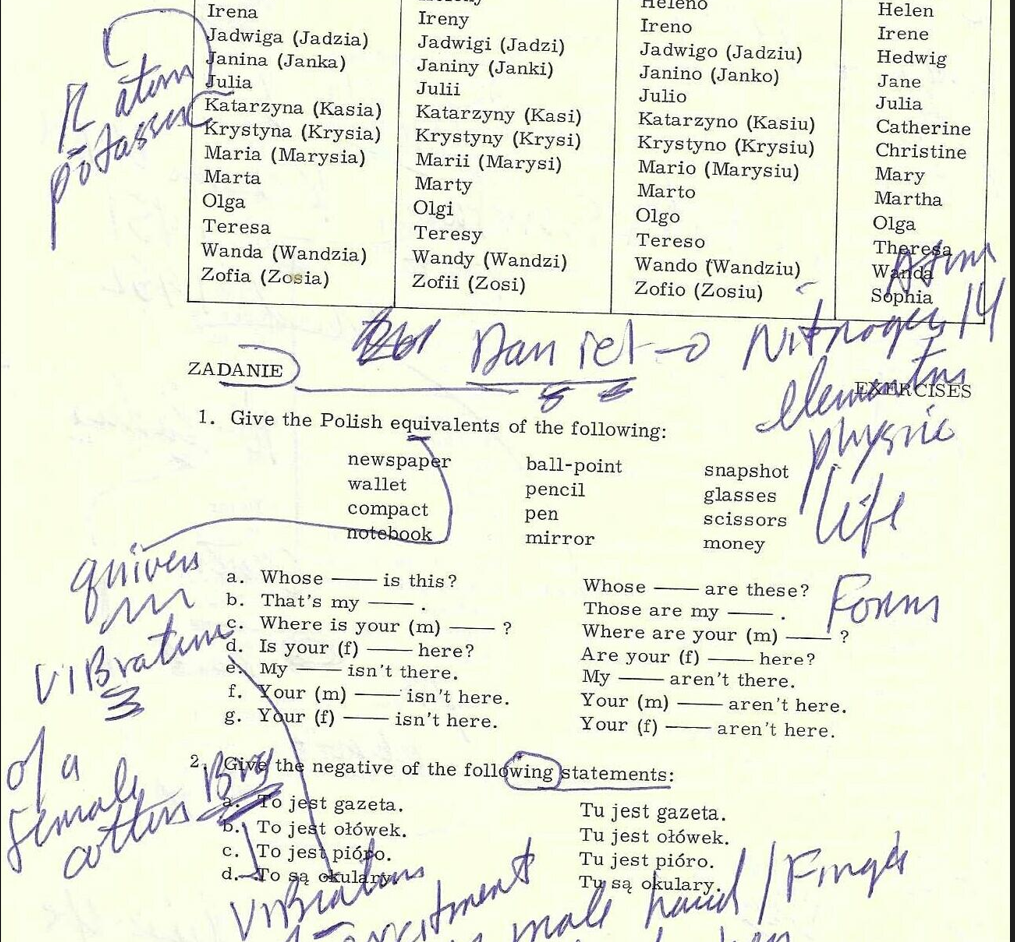 Irena Ireny Ireno Helen
Jadwiga (Jadzia) Jadwigi (Jadzi) Jadwigo (Jadziu) Irene
Janina (Janka) Janiny (Janki) Janino (Janko) Hedwig
Julia Julii Julio Jane
Katarzyna (Kasia) Katarzyny (Kasi) Katarzyno (Kasiu) Julia
Krystyna (Krysia) Krystyny (Krysi) Krystyno (Krysiu) Catherine
Maria (Marysia) Marii (Marysi) Mario (Marysiu) Christine
Marta Marty Marto Mary
Olga Olgi Olgo Martha
Teresa Teresy Tereso Olga
Wanda (Wandzia) Wandy (Wandzi) Wando (Wandziu) Theresa
Zofia (Zosia) Zofii (Zosi) Zofio (Zosiu) Wanda
Sophia
atom
Nitrogen 14
ZADANIE EXERCISES
physic
life
Forms
1. Give the Polish equivalents of the following:
newspaper ball-point snapshot
wallet pencil glasses
compact pen scissors
notebook mirror money
quivers
a. Whose —— is this? Whose —— are these?
b. That's my —— . Those are my —— .
c. Where is your (m) —— ? Where are your (m) —— ?
d. Is your (f) —— here? Are your (f) —— here?
e. My —— isn't there. My —— aren't there.
f. Your (m) —— isn't here. Your (m) —— aren't here.
g. Your (f) —— isn't here. Your (f) —— aren't here.
of a
female
2. Give the negative of the following statements:
a. To jest gazeta. Tu jest gazeta.
b. To jest ołówek. Tu jest ołówek.
c. To jest pióro. Tu jest pióro.
d. To są okulary. Tu są okulary.
male hand /